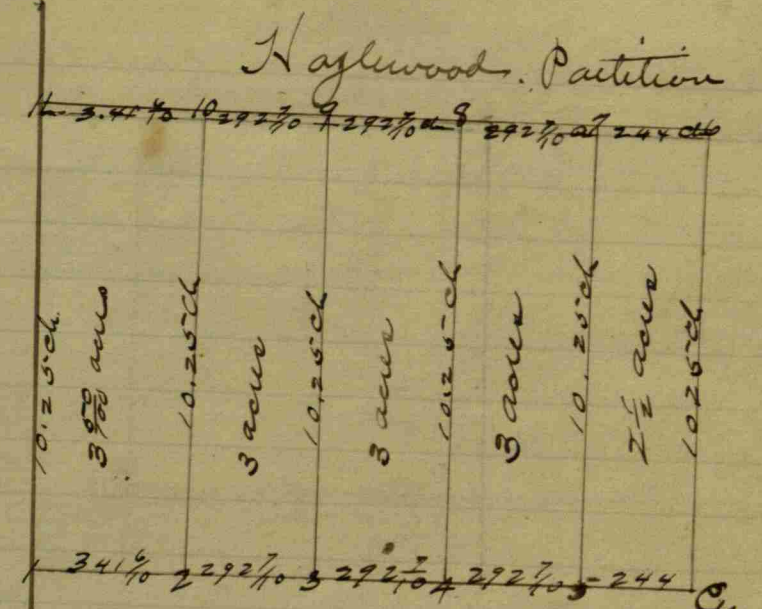 Haglewood. Partition
11 3.41 6/10 10 292 7/10 9 292 7/10 ch 8 292 7/10 ch 7 244 ch 6
10.25 ch.
3 50/100 acres
10.25 ch
3 acres
10.25 ch
3 acres
10.25 ch
3 acres
10.25 ch
2 1/2 acres
10 25 ch
1 341 6/10 2 292 7/10 3 292 7/10 4 292 7/10 5 244